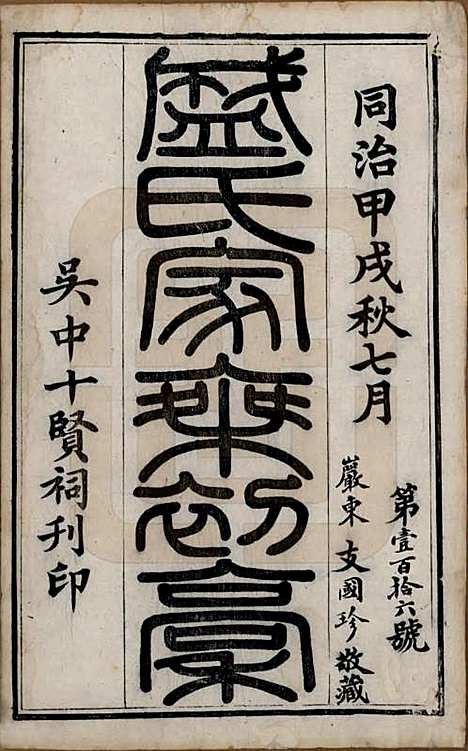 同治甲戌秋七月
第壹百拾六號
嚴東支國珍敬藏
盛氏家乘初稾
吳中十賢祠刊印